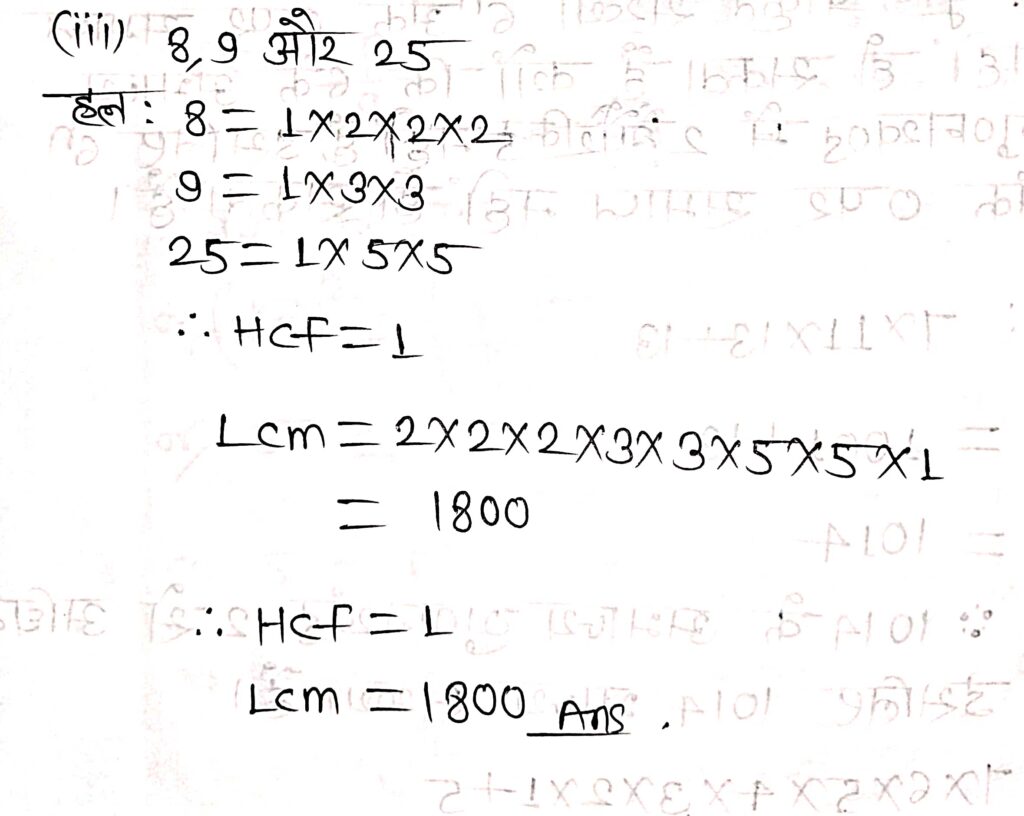 (iii) 8,9 और 25
हल: 8 = 1×2×2×2
9 = 1×3×3
25 = 1×5×5
∴ HCF = 1
Lcm = 2×2×2×3×3×5×5×1
= 1800
∴ HCF = 1
Lcm = 1800 Ans.